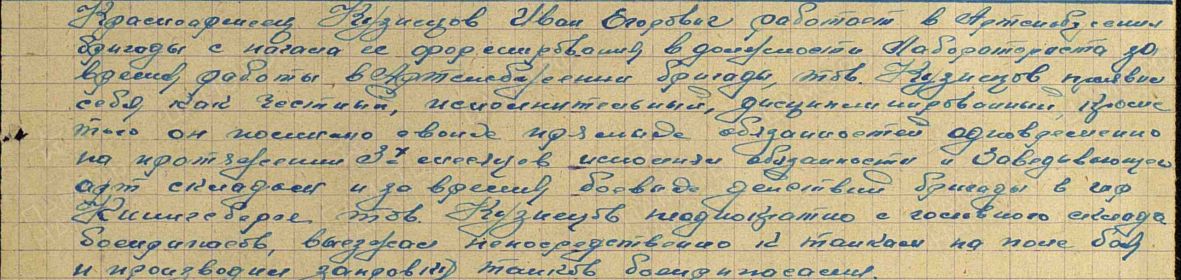 Красноармеец Кузнецов Иван Егорович работает в Артснабжении
бригады с начала ее формирования в должности Лабороториста за
время работы в Артснабжении бригады, тов. Кузнецов проявил
себя как честный, исполнительный, дисциплинированный кроме
того он помимо своих прямых обязанностей одновременно
на протяжении 3х месяцев исполнял обязанности и Заведывающего
арт складом и за время боевых действий бригады в гор
Кинигсберге тов. Кузнецов неоднократно с головного склада
боеприпасов, выезжал непосредственно к танкам на поле боя
и производил заправки танков боеприпасами.